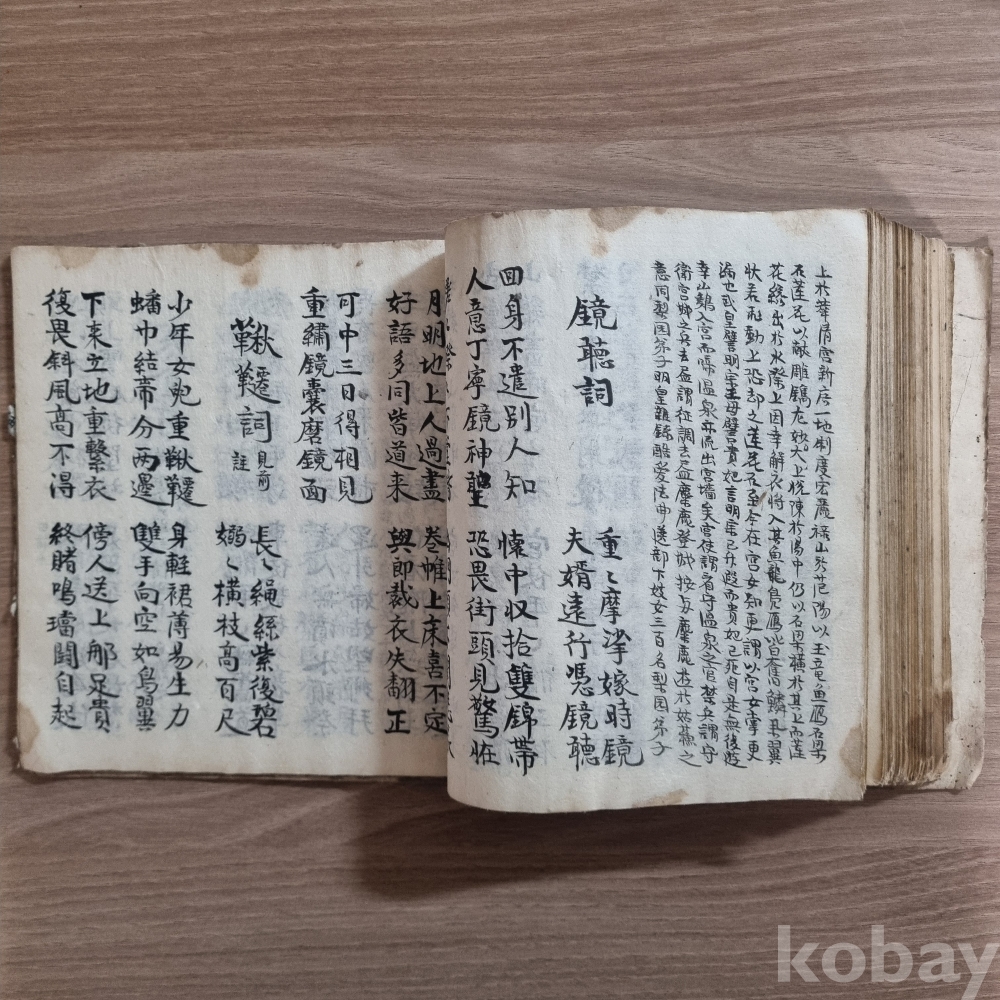 上於華清宮新店一地制度宏麗祿山於范陽以玉竜魚鴈石梁
石蓮花以献雕鐫尤妙大上悅陳於湯中仍以石梁横於其上而蓮
花纔出於水際上因幸解衣將入其魚龍鳧鴈皆奮鱗舉翼
狀若飛動上恐却之蓮花石至今在宮女知更謂以宮女掌更
漏也武皇譬明宗王母譬貴妃言明宗已升遐而貴妃已死自是無後遊
幸山鷄入宮而啼溫泉亦流出宮墻矣宮使謂看守溫泉之官禁兵謂守
衛宮卿之兵去盡謂征調去盡麋鹿登城按麋鹿遊於姑蘇之
意同梨園弟子明皇雜錄酷愛法曲選部下妓女三百名梨園弟子
鏡聽詞
重〻摩挲嫁時鏡
夫婿遠行憑鏡聽
回身不遣別人知 懷中収拾雙錦帶
人意丁寧鏡神聖 恐畏街頭見驚恠
月明地上人過盡 巻帷上床喜不定
好語多同皆道来 與郎裁衣失翻正
可中三日得相見
重繡鏡囊磨鏡面
鞦韆詞 見前註
長〻繩絲紫復碧
嫋〻横枝高百尺
少年女兒重鞦韆 身輕裙薄易生力
蟠巾結帶分兩邊 雙手向空如鳥翼
下来立地重繫衣 傍人送上那足貴
復畏斜風高不得 終賭鳴璫鬪自起
kobay